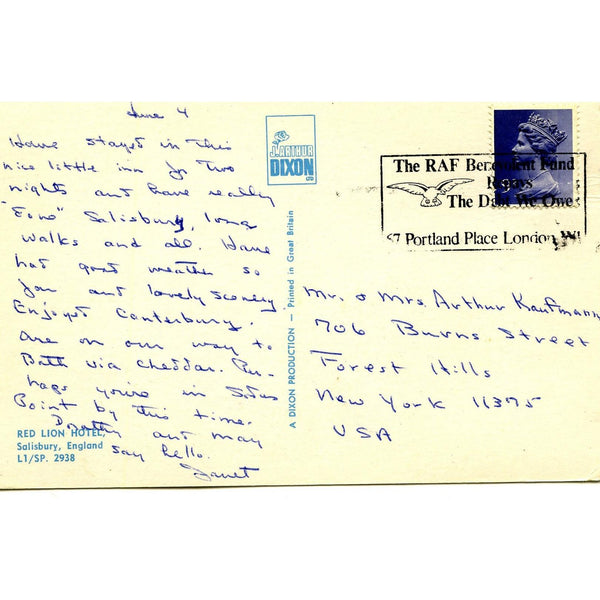 June 4
Have stayed in this
nice little inn for two
nights and have really
"Eono" Salisbury, long
walks and all. Have
had good weather so
far and lovely scenery.
Enjoyed Canterbury.
are on our way to
Bath via Cheddar. Per-
haps you're in
Point by this time.
Dorothy and may
say hello.
Janet
RED LION HOTEL,
Salisbury, England
L1/SP. 2938
J. ARTHUR
DIXON
A DIXON PRODUCTION — Printed in Great Britain
The RAF Benevolent Fund
Repays
The Debt We Owe
67 Portland Place London W1
Mr. & Mrs. Arthur Kaufmann
706 Burns Street
Forest Hills
New York 11375
USA